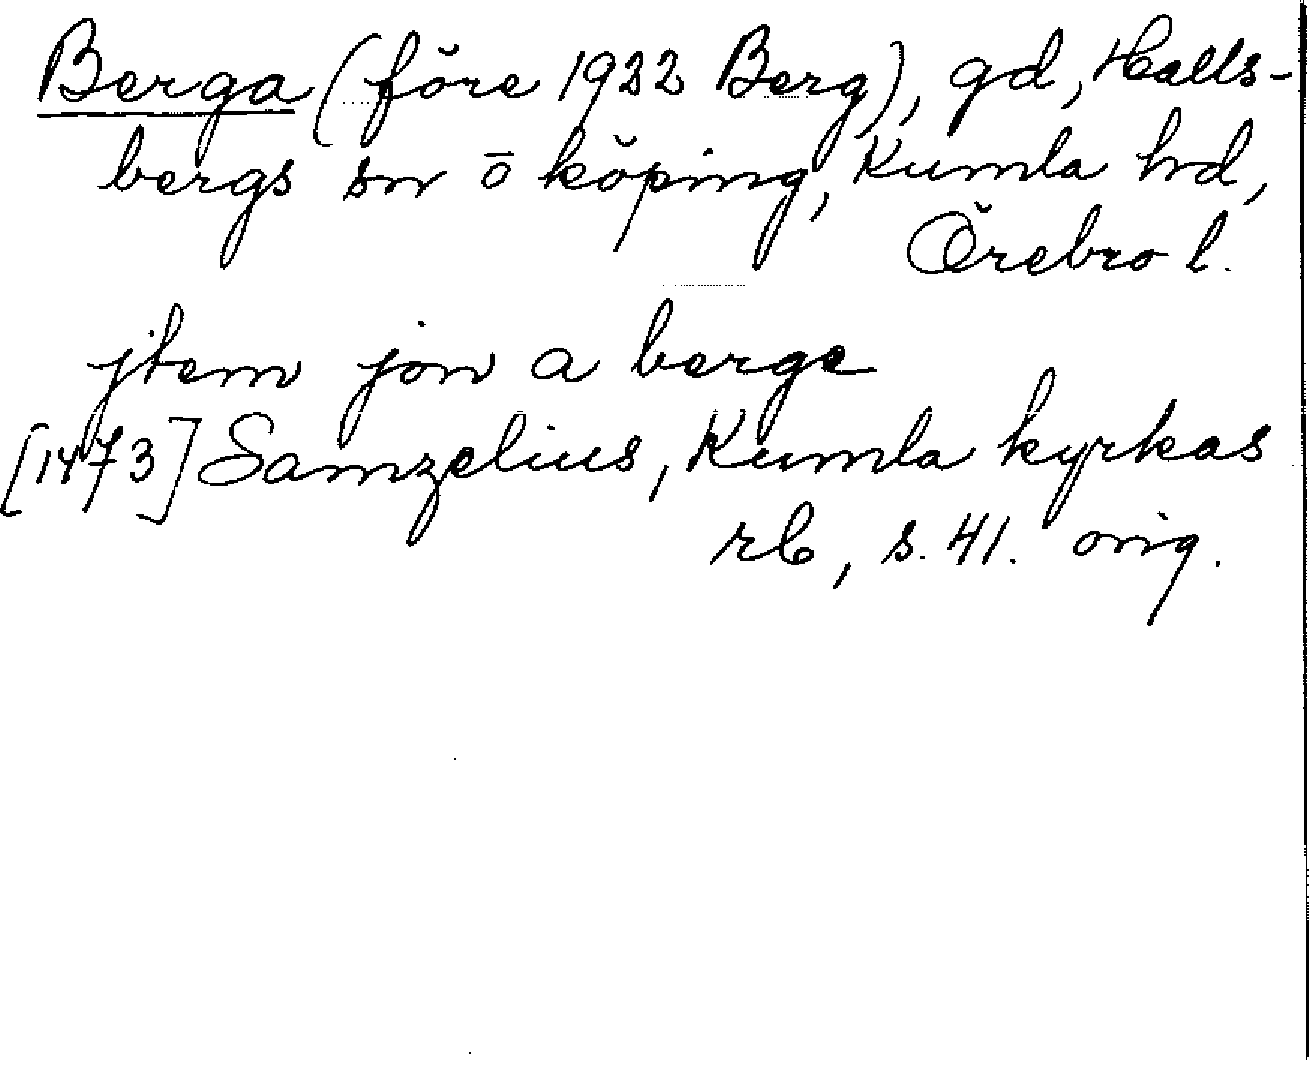 Berga (före 1922 Berg), gd, Halls-
bergs sn o köping, Kumla hd,
Örebro l.
jtem jon a berge
[1473] Samzelius, Kumla kyrkas
rb, s. 41. orig.